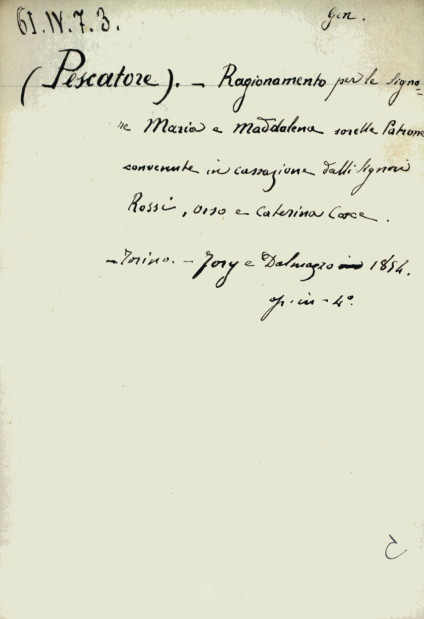 61.IV.7.3.
Gen.
(Pescatore). - Ragionamento per le Signo=
re Maria e Maddalena sorelle Patrone
convenute in cassazione dalli Signori
Rossi, Orso e Caterina
-Torino. - Fory e Dalmazzo 1854.
op. in-4°.